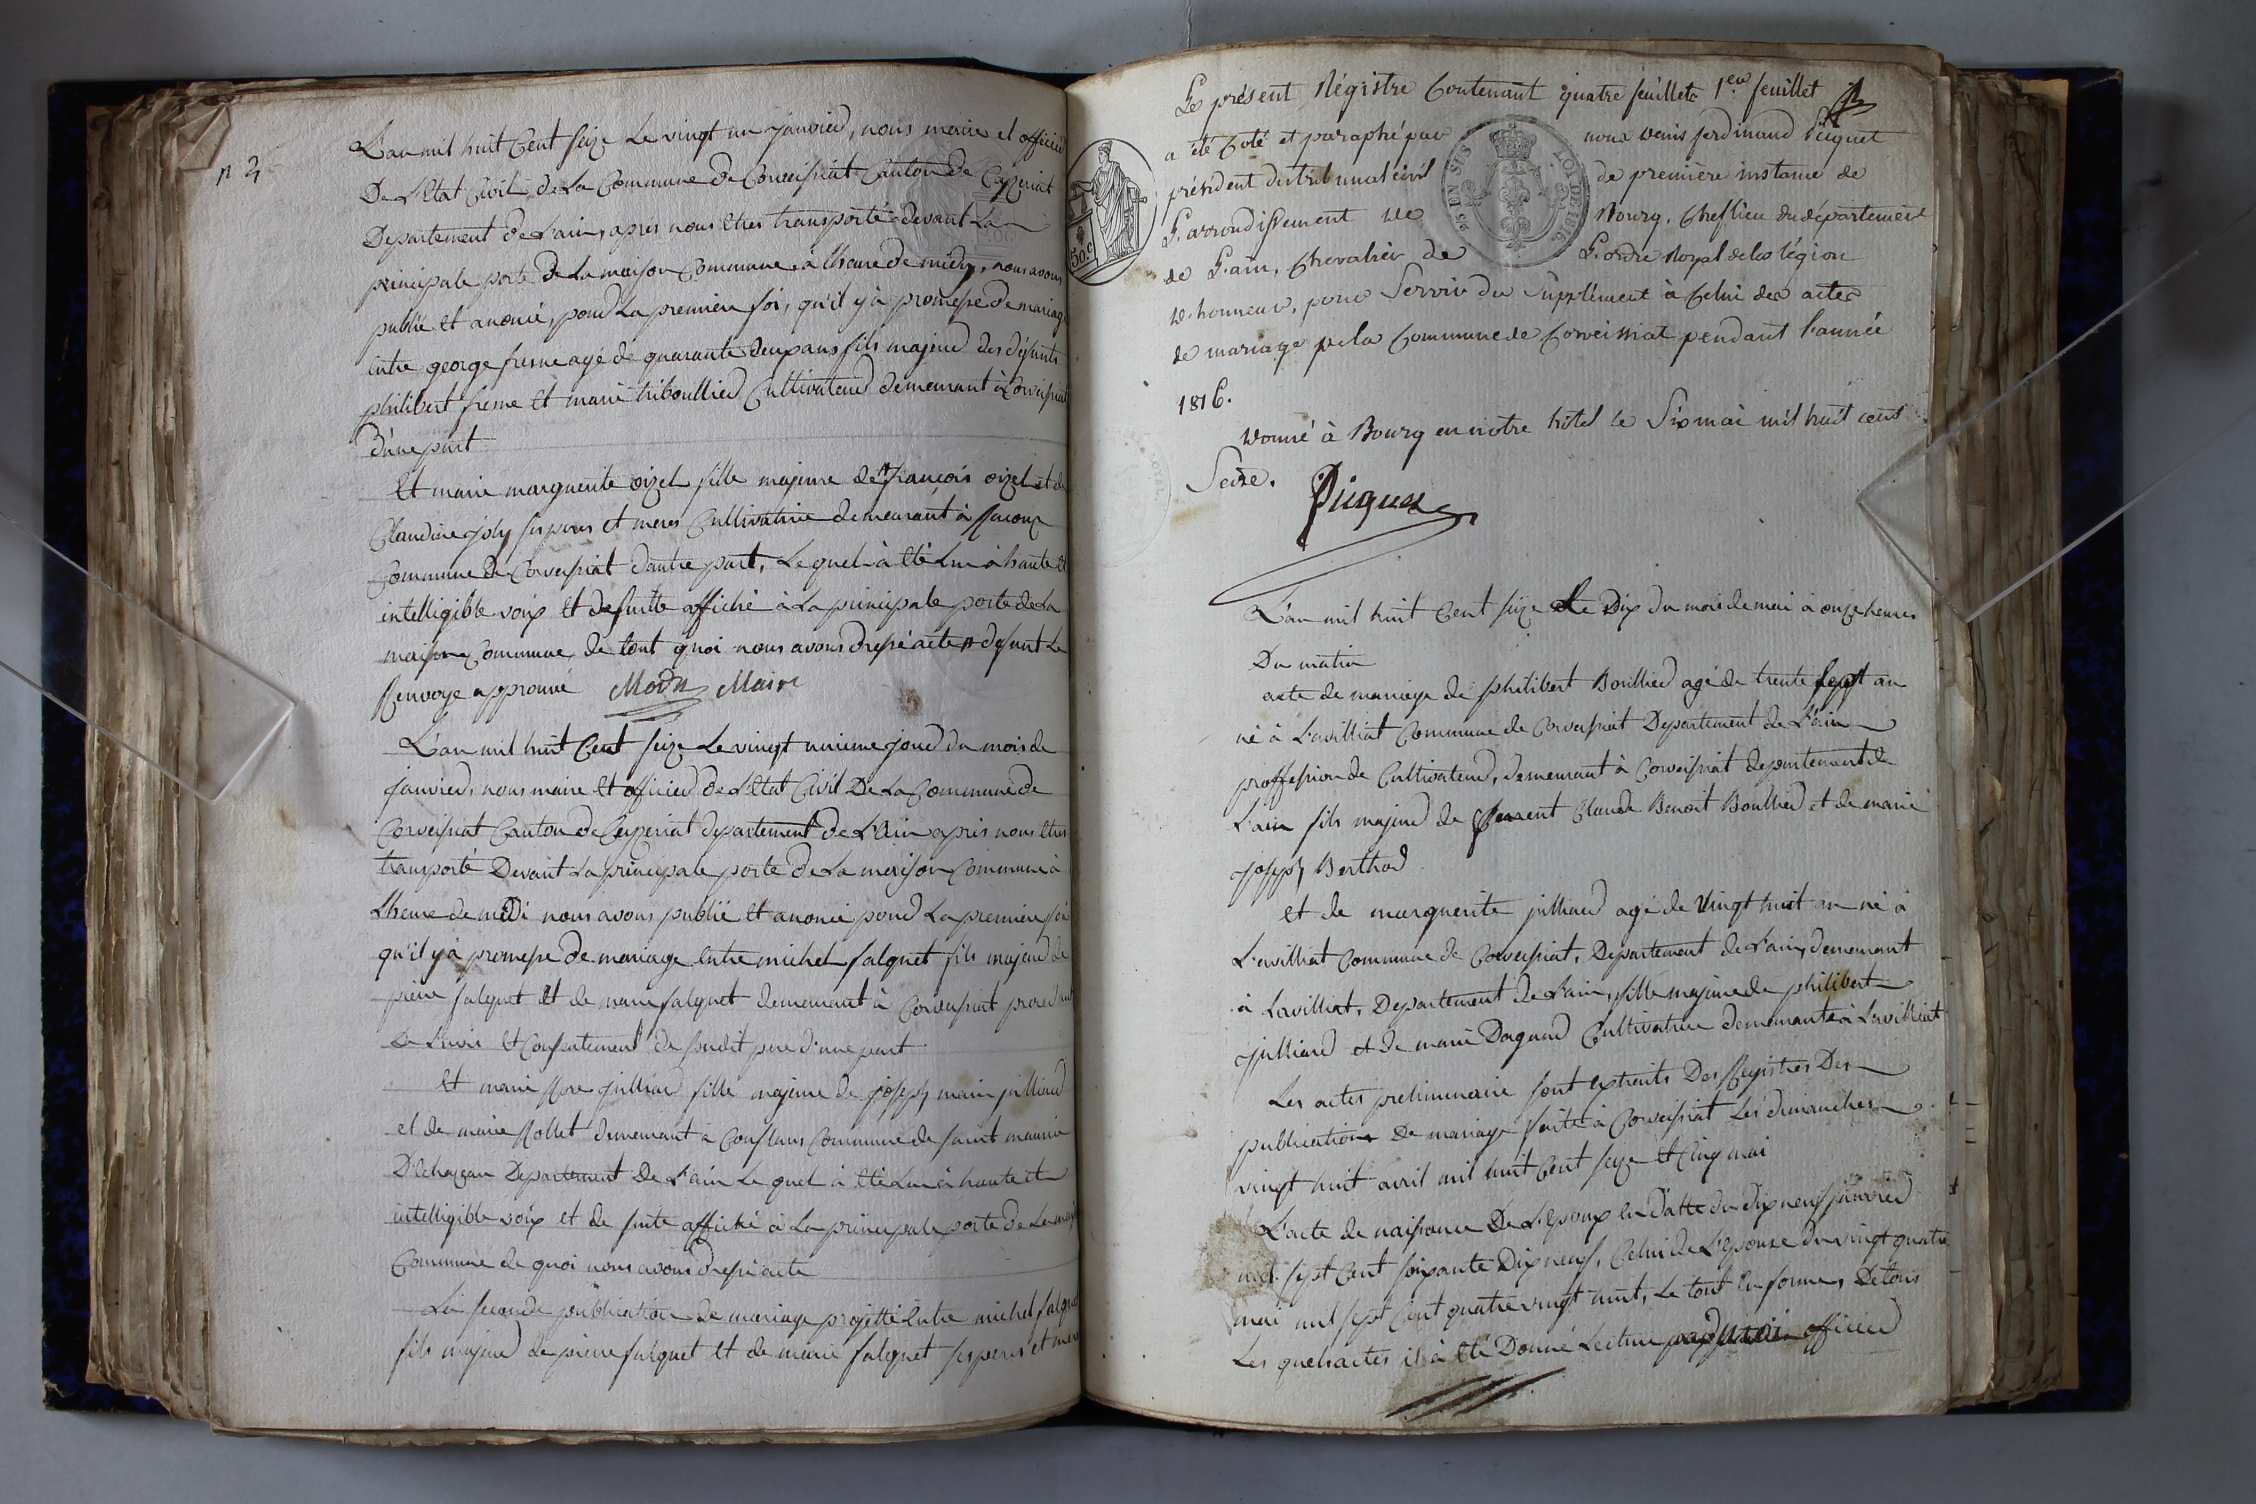 n 2
L'an mil huit Cent Seize Le vingt un janvier, nous maire et officier
De L'Etat Civil de La Commune de Corveissiat Canton de Ceyzeriat
Departement de L'ain, apres nous etres transporté devant La
principale porte De La maison Commune, a Lheure de midy, nous avons
publié et anoncé, pour La premiere foi, qu'il y à promesse de mariage
entre george fresne agé de quarante deux ans fils majeur des défunts
philibert fresne et marie Cultivateur demeurant à Corveissiat
d'une part
Et marie marguerite oizel fille majeure de françois oizel et de
Claudine joly ses peres et meres Cultivatrice demeurant à
Commune de Corveissiat dautre part, Lequel à été Lu à haute et
intelligible voix et de suitte affiché à La principale porte de La
maison Commune, de tout quoi nous avons dressé acte defunt Le
Renvoye approuvé Maire
L'an mil huit Cent Seize Le vingt unieme jour du mois de
janvier, nous maire et officier de L'Etat Civil De La Commune de
Corveissiat Canton de Ceyzeriat departement de L'Ain apres nous etres
transporté Devant La principale porte de La maison Commune à
Lheure de midi nous avons publié et anoncé pour La premiere foi
qu'il y à promesse de mariage entre michel falquet fils majeur de
pierre falquet et de marie falquet demeurant à Corveissiat
De L'avis et Consentement de sudit pere d'une part
Et marie fille majeure de joseph marie juilliard
et de marie Rollet demeurant à Conflans Commune de saint maurice
D'Echazau Departement de L'ain Lequel à été Lu à haute et
intelligible voix et de suite affiché à La principale porte de La
Commune de quoi nous avons dressé acte
La seconde publication de mariage projetté entre michel falquet
fils majeur de pierre falquet et de marie falquet ses peres et mere
Le présent Régistre Contenant quatre feuillets 1er feuillet
a été Coté et paraphé par nous Denis ferdinand Picquet
président du tribunal civil de première instance de
L'arrondissement de Bourg, Cheflieu du département
de L'ain, Chevalier de L'ordre Royal de la légion
D'honneur, pour Servir de Supplément à Celui des actes
de mariage de la Commune de Corveissiat pendant l'année
1816.
Donné à Bourg en notre hôtel le Six mai mil huit cent
Seize. Picquet
30.c
L'an mil huit Cent seize Le Dix du mois de mai à onze heures
Du matin
acte de mariage de philibert Bouillier agé de trente sept an
né à L'avilliat Commune de Corveissiat Departement de L'ain
proffession de Cultivateur, demeurant à Corveissiat departement de
L'ain fils majeur de Claude Benoit Boullier et de marie
joseph Berthod
et de marguerite juilliard agé de Vingt huit an né à
L'avilliat Commune de Corveissiat, Departement de L'ain, demeurant
à Lavilliat, Departement de L'ain, fille majeure de philibert
juilliard et de marie Cultivatrice demeurante à Lavilliat
Les actes preliminaire sont extraits Des Registres Des
publications De mariage faite à Corveissiat Les dimanches
vingt huit avril mil huit Cent seize et Cinq mai
L'acte de naissance De L'Epoux en datte du dix neuf janvier
mil sept Cent soixante Dix neuf, Celui de L'Epouse du vingt quatre
mai mil sept Cent quatre vingt huit, Le tout en forme, De tous
Les quels actes il à été Donné Lecture officier